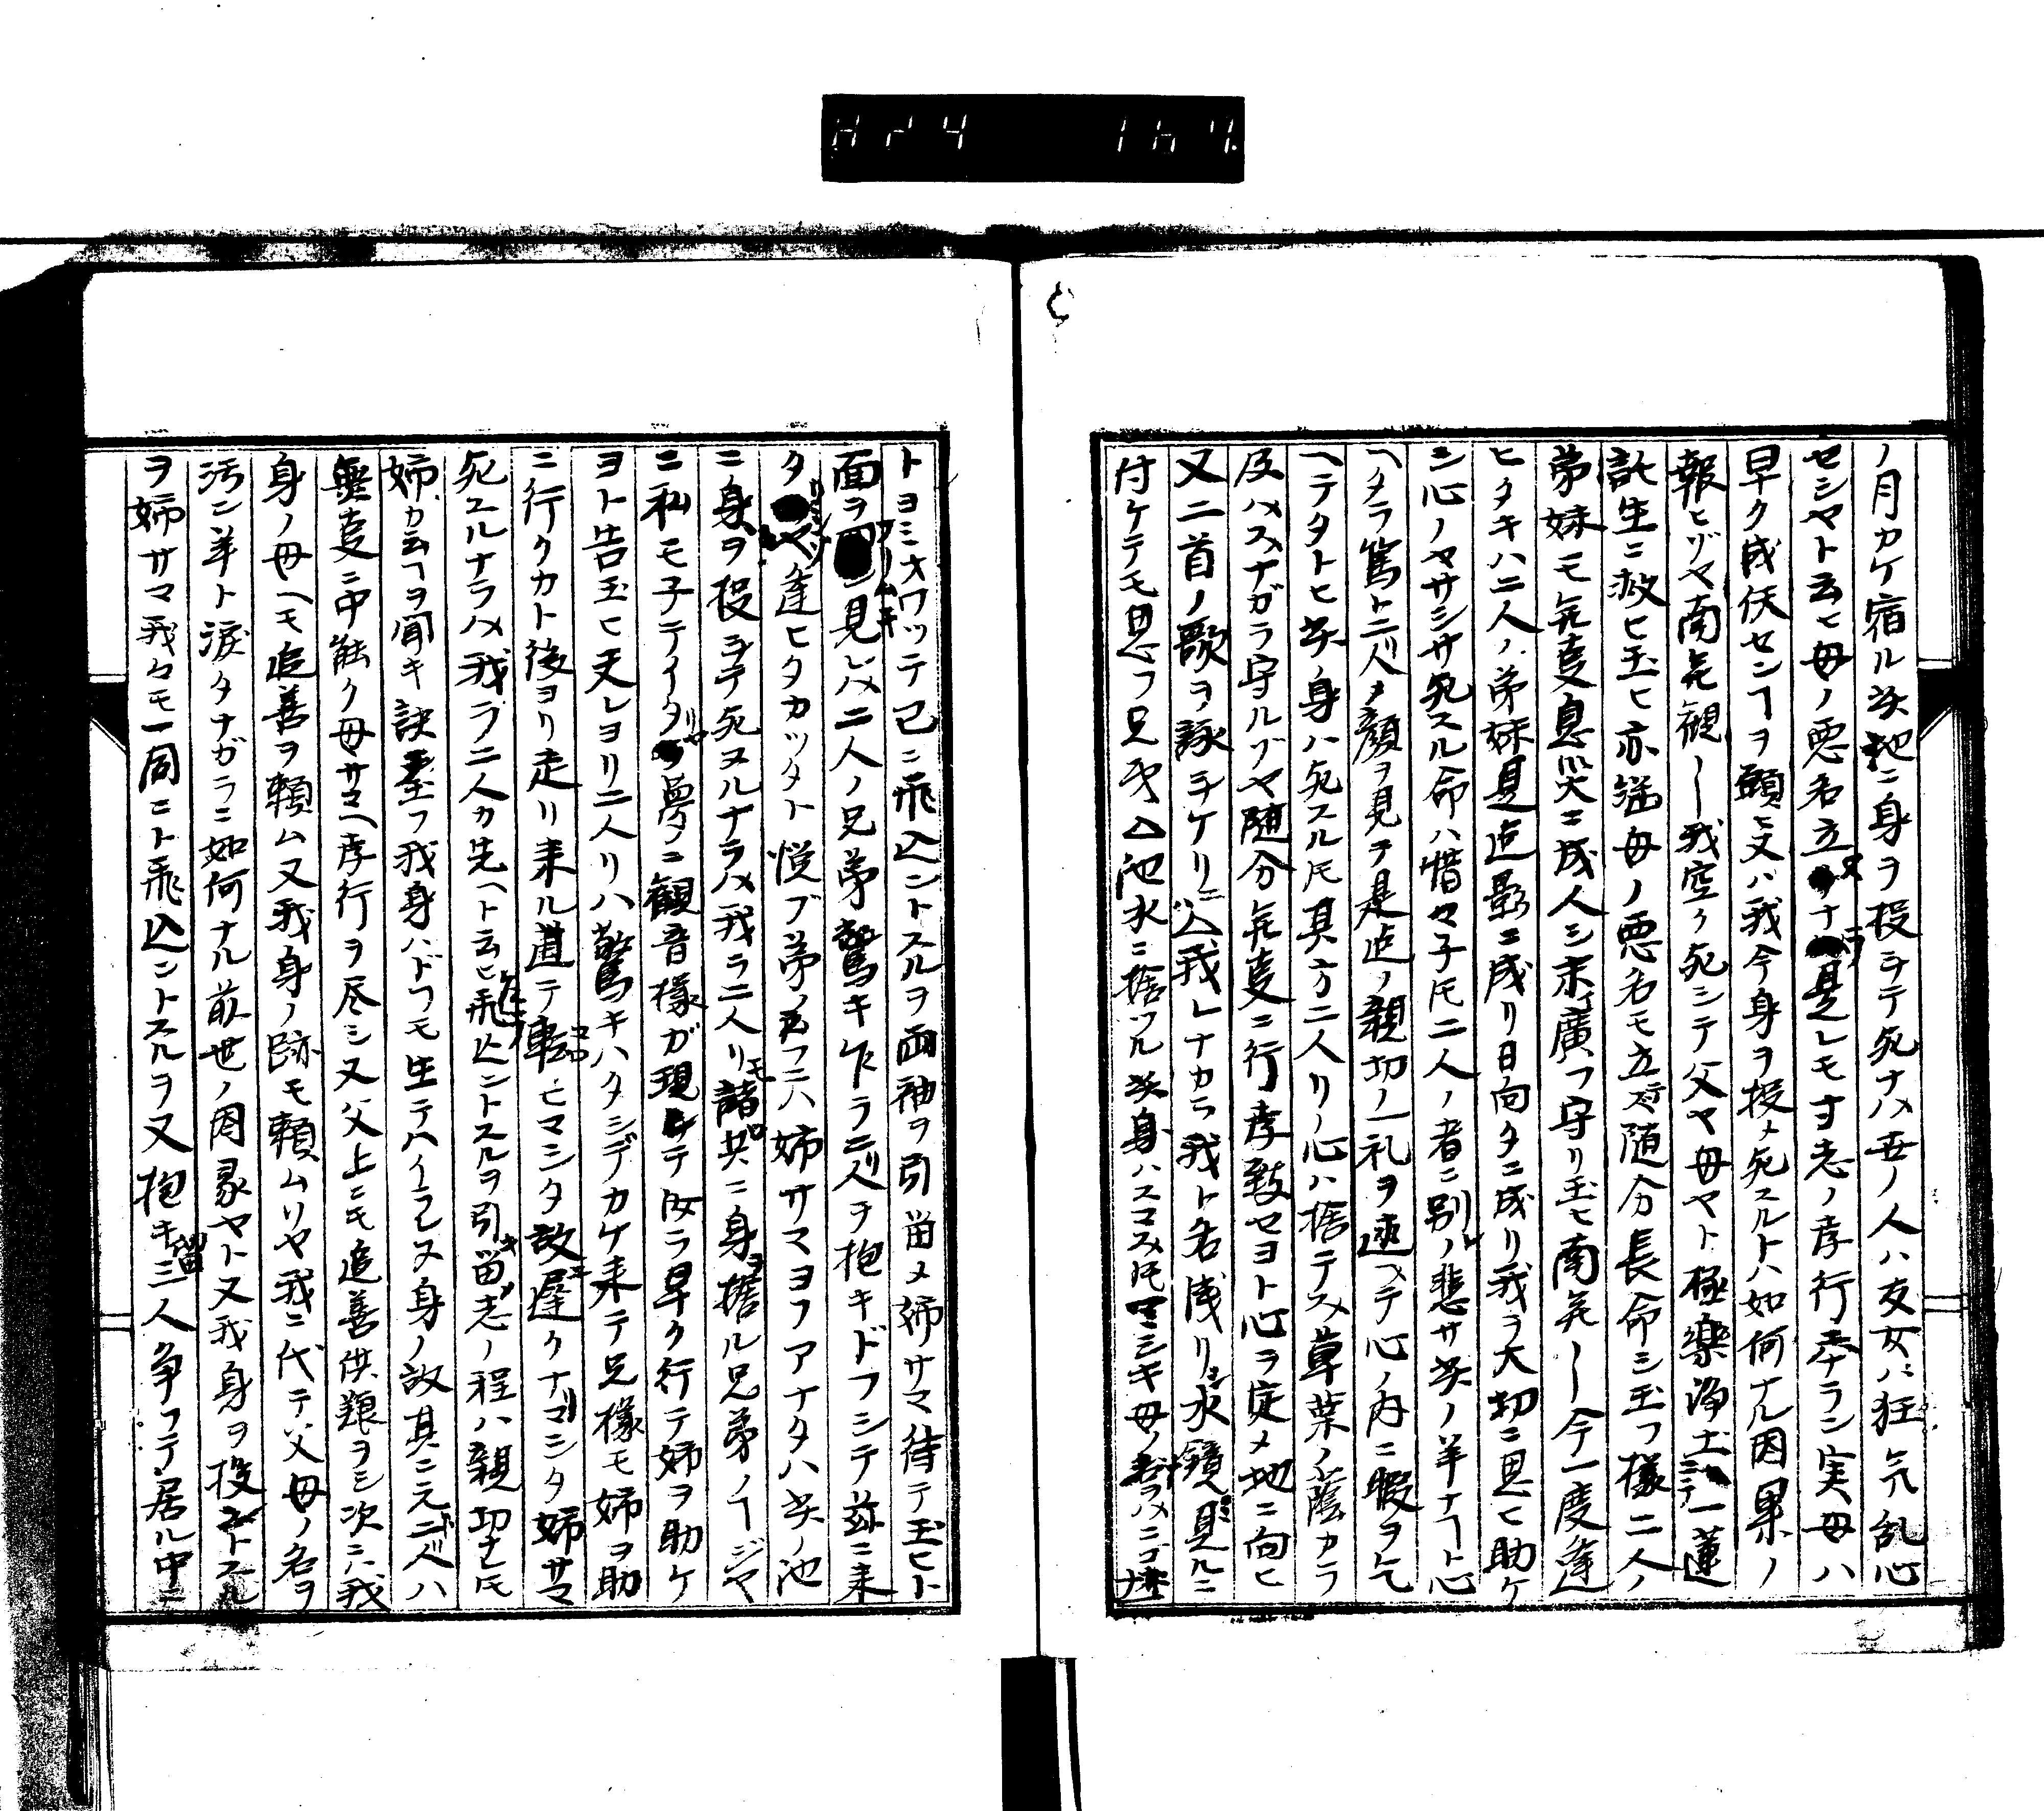 ノ月カケ宿ル笑池ニ身ヲ投ヲテ死ナハ世ノ人ハ友女ハ狂気乱心
セシヤト云ヒ母ノ悪名立ナ是レモ寸志ノ孝行ナラン実母ハ
早ク成仏センヿヲ願ヒ又ハ我今身ヲ投メ死スルトハ如何ナル因果ノ
報ヒヅヤ南無観〳〵我空ク死シテ父ヤ母ヤト極楽浄土ニテ一蓮
託生ニ救ヒ玉ヒ亦継母ノ悪名モ立ズ随分長命シ玉フ様二人ノ
弟妹モ無㕝息災ニ成人シ末廣フ守リ玉ヒ南無〳〵今一度逢
ヒタキハ二人ノ弟妹是迠影ニ成リ日向タニ成リ我ラ大切ニ思ヒ助ケ
シ心ノヤサシサ死スル命ハ惜々子ドモ二人ノ者ニ別レノ悲サ笑ノ羊ナヿト心
ヘタラ篤ト二人タ顔ヲ見テ是迠ノ親切ノ一礼ヲ速ヘテ心ノ内ニ暇ヲ乞
ヘテタトヒ笑ノ身ハ死スル𪜈其方二人リノ心ハ捨テスメ草葉ノ蔭カラ
及ハスナガラ守ルゾヤ随分無㕝ニ行孝致セヨト心ラ定メ地ニ向ヒ
又二首ノ歌ヲ詠ヲケリニ\我レナカラ我ト名残リシ水鏡見ルニ
付ケテモ思フ兄弟\池水ニ捨ツル笑身ハスマス𪜈マシキ母ノ名ラハニコサ
トヨミオワッテ已ニ飛込ントスルヲ両袖ヲ引留メ姉サマ待テ玉ヒト
面ヲフリムキ見レハ二人ノ兄弟驚キ乍ラ二人ヲ抱キドフシテ玆ニ来
タリシゾヤ逢ヒタカッタト悦ブ弟ノ玉フニハ姉サマヨフアナタハ笑ノ池
ニ身ヲ投ヲテ死ヌルナラハ我ラ二人リモ諸共ニ身ヲ捨ル兄弟ノヿジヤ
ニ私モ子テイタリヤ夢ニ観音様ガ現シテ汝ラ早ク行テ姉ヲ助ケ
ヨト告玉ヒ夫レヨリ二人リハ驚キハタシデカケ来テ兄様モ姉ヲ助
ニ行クカト後ヨリ走リ来ル道テ転ヒマシタ故ニ遅クナリマシタ姉サマ
死スルナラハ我ラ二人カ先ヘト云ヒ飛込ントスルヲ引キ留メ志ノ程ハ親切ナレ𪜈
姉カ云フヿヲ聞キ訣玉フ我身ハドフモ生テハイラレヌ身ノ故其ニ元二人ハ
無㕝ニ中能ク母サマヘ孝行ヲ尽シ又父上ニモ追善供養ヲシ次ニハ我
身ノ母ヘモ追善ヲ頼ム又我身ノ跡モ頼ムリヤ我ニ代テ父母ノ名ヲ
汚ニ羊ト涙タナガラニ如何ナル前世ノ因縁ヤト又我身ヲ投ントスル
ヲ姉サマ我々モ一同ニト飛込ントスルヲ又抱キ留三人争フテ居ル中ニ